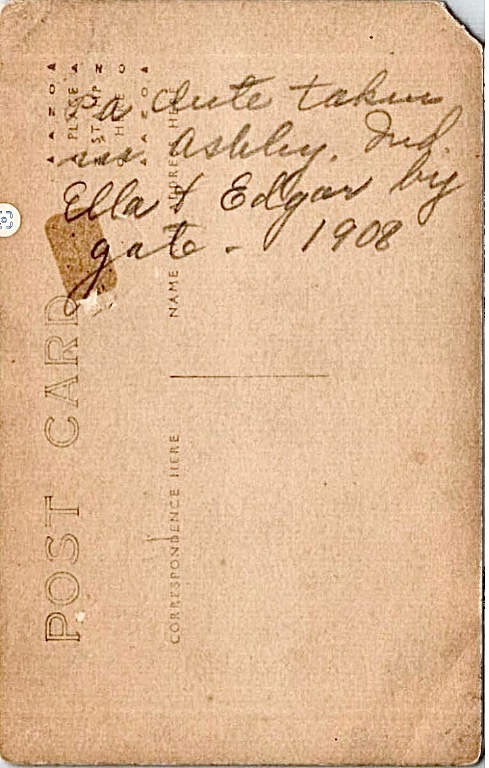 Pa Clute taken
in Ashley, Ind.
Ella & Edgar by
gate - 1908
POST CARD
CORRESPONDENCE HERE
NAME ADDRESS HERE
PLACE
STAMP
HERE